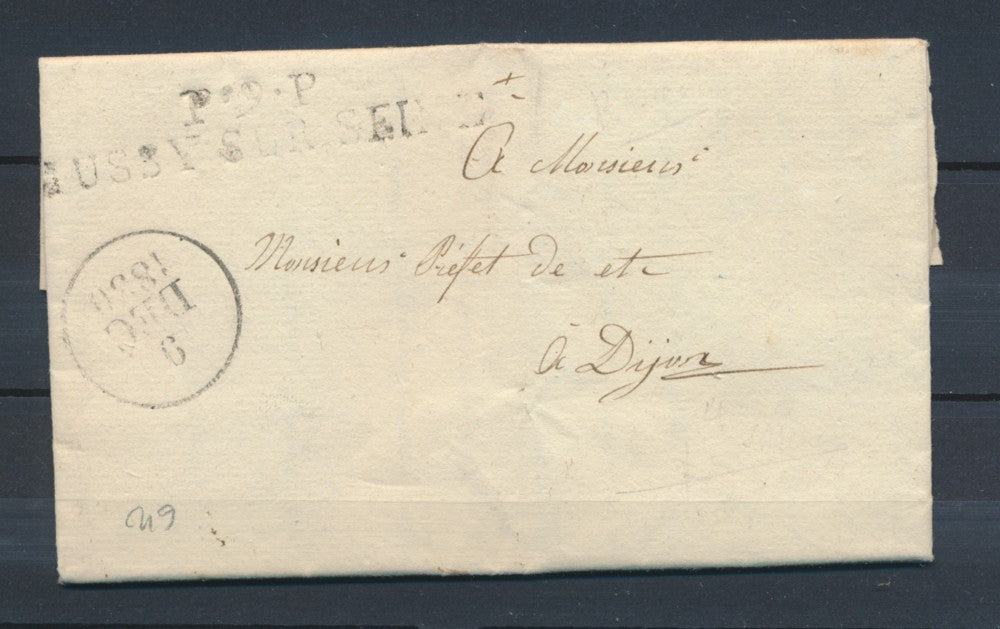 P·9·P
MUSSY-SUR-SEINE
A Monsieur
Monsieur Préfet de etc
à Dijon
9
DEC
1830